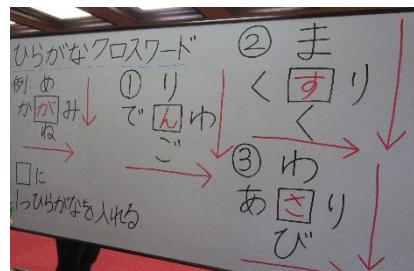 ひらがなクロスワード
例: め
か が み
ね
□に
1つひらがなを入れる
① り
で ん わ
ご
② ま
く す り
く
③ わ
あ さ り
び